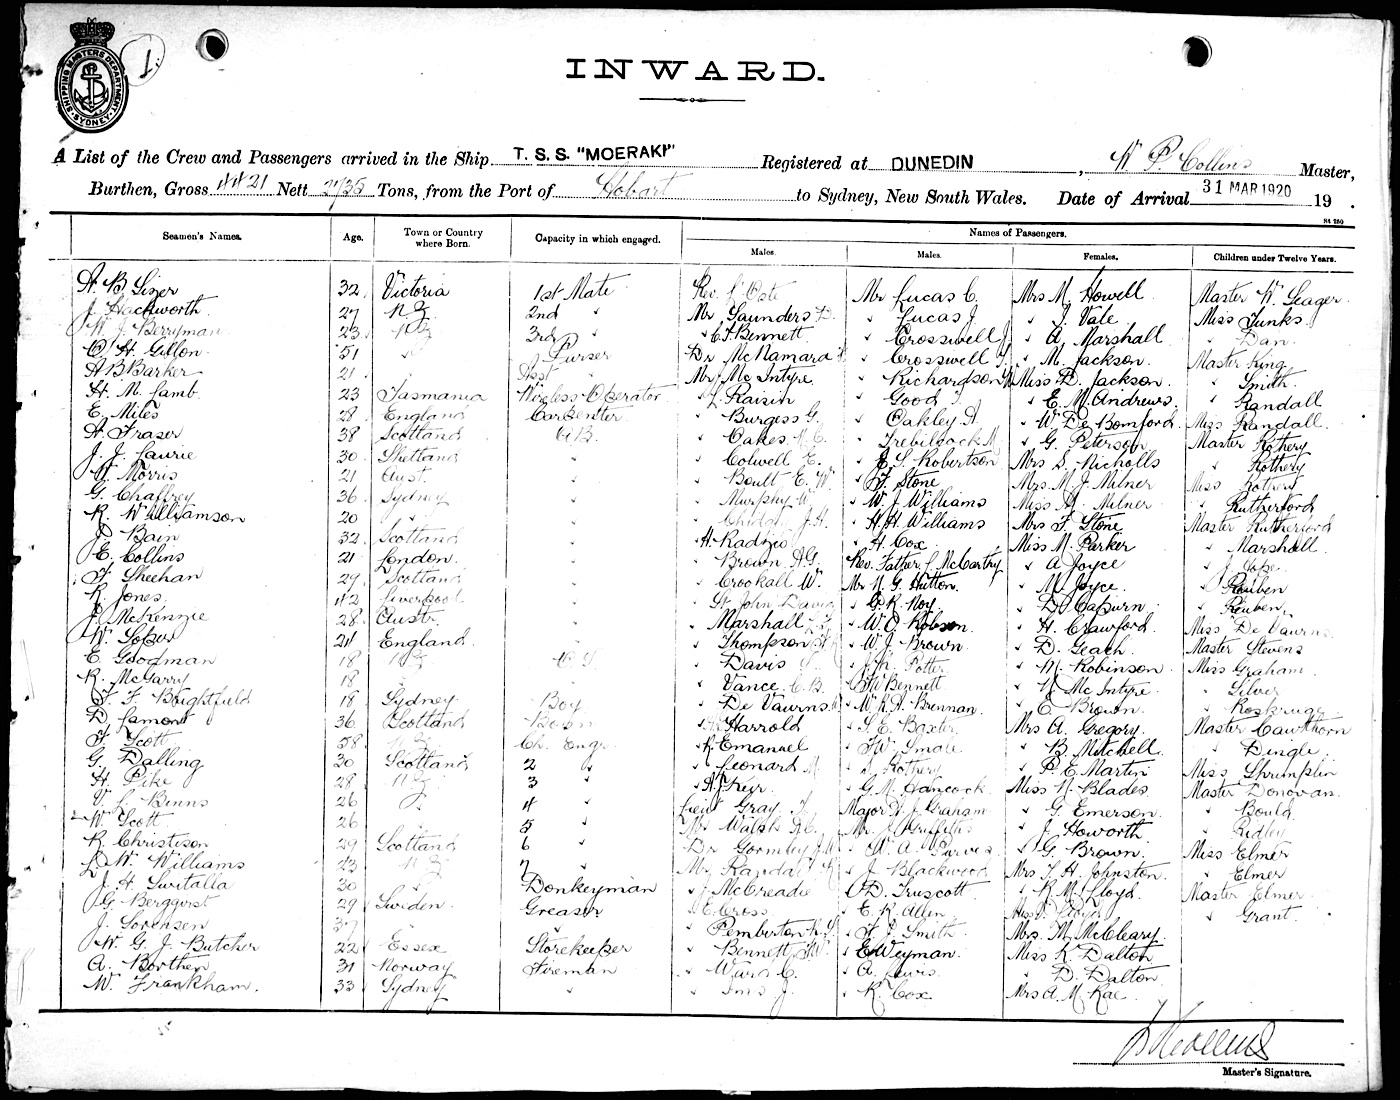 SHIPPING MASTERS DEPARTMENT SYDNEY
1.
INWARD.
A List of the Crew and Passengers arrived in the Ship T. S. S. "MOERAKI" Registered at DUNEDIN, W P. Collins Master,
Burthen, Gross 4421 Nett 2735 Tons, from the Port of Hobart to Sydney, New South Wales. Date of Arrival 31 MAR 1920 19 .
Seamen's Names. Age. Town or Country where Born. Capacity in which engaged. Names of Passengers.
Males. Males. Females. Children under Twelve Years.
A. B. 32 Victoria 1st Mate Rev. Mr Lucas C. Mrs M. Howell Master W. Seager
J. Hackworth 27 N Z. 2nd " Mr Saunders " Lucas J. " J. Vale Miss Junks
W. J. Berryman 23 N Z 3rd " " C. F. Bennett " Crosswell J. " A. Marshall " Dan
H. Gillon 51 " Purser Dr McNamara " Crosswell " M. Jackson Master King
A B Barker 21 Asst " Mr McIntyre " Richardson Miss D. Jackson " Smith
H. M. Lamb 23 Tasmania Wireless Operator " Raisin " Good " E. M. Andrews " Randall
E. Miles 28 England Carpenter " Burgess G. " Oakley A " W. De Bomford Miss Randall
A. Fraser 38 Scotland A B. " Oakes " Trebilcock " G. Peterson Master Rothery
J. J. Laurie 30 Shetland " " Colwell E. " S. Robertson Mrs S. Nicholls " Rothery
Morris 21 Aust. " " Boult E. W. " F. Stone Mrs. M. J. Milner Miss Rothery
G. Chaffrey 36 Sydney " " Murphy W " W. J. Williams Miss Milner " Rutherford
R. Williamson 20 " " " J. H. " H. H. Williams Mrs F. Stone Master Rutherford
J. Bain 32 Scotland " " " H. Cox Miss M. Parker " Marshall
E. Collins 21 London " " Brown A. G. Rev. Father McCarthy " A Joyce " J. Cope
F. Sheehan 29 Scotland " " Crookall W. Mr N. G. Hutton " M Joyce " Reuben
R. Jones 42 Liverpool " " St. John David " G. R. Noy " D. Capurn " Reuben
J. McKenzie 28 Austr. " " Marshall " W. O. Robson " H. Crawford Miss De Vawrns
W. 21 England " " Thompson " W. J. Brown " D. Geach Master Stevens
E. Goodman 18 N Z. " Davis " Potter " M. Robinson Miss Graham
R. McGarry 18 " " " Vance C. B. " F W Bennett " McIntyre " Silver
F. F. Brightfield 18 Sydney Boy " De Vawrns " W. R. A. Brennan " E Brown " Roskruge
D. Lamont 36 Scotland " Harrold " S. E. Baxter Mrs A. Gregory Master Cawthorn
F. Scott 58 N Z Ch. Engr. " Emanuel " F W. Smale " B. Mitchell " Dingle
G. Dalling 30 Scotland 2 " " Leonard M. " Rothery " P. E. Martin Miss Shrumplin
H. Pike 28 N Z 3 " " A. J. Keir " G. M. Hancock Miss N. Blades Master Donovan
V. L. Binns 26 " 4 " Lieut Gray Major H. J. Graham " G. Emerson " Bould
W Scott 26 " 5 " Mr Walsh Mr. J. Griffiths " J. Howorth " Ridley
R. Christison 29 Scotland 6 " Dr Gormley " W. A. Purves " G. Brown Miss Elmer
L. W. Williams 23 N Z. 7 " Mr Randall " J Blackwood Mrs F. H. Johnston " Elmer
J. H. Switalla 30 " Donkeyman " McCreadie " D. Truscott " R. M. Lloyd Master Elmer
G. Bergqvist 29 Sweden Greaser " E. Cross " E. R. Allen Miss Lloyd " Grant
J. Sorensen 37 " " " Pemberton " F. J. Smith Mrs. M. McCleary
W. G. J. Butcher 22 Essex Storekeeper " Bennett " E Weyman Miss K. Dalton
A. Borthen 31 Norway Fireman " Ward C. " A. Lewis " D. Dalton
W. Frankham 33 Sydney " " Ims J. " R. Cox Mrs A. M. Rae
Master's Signature.